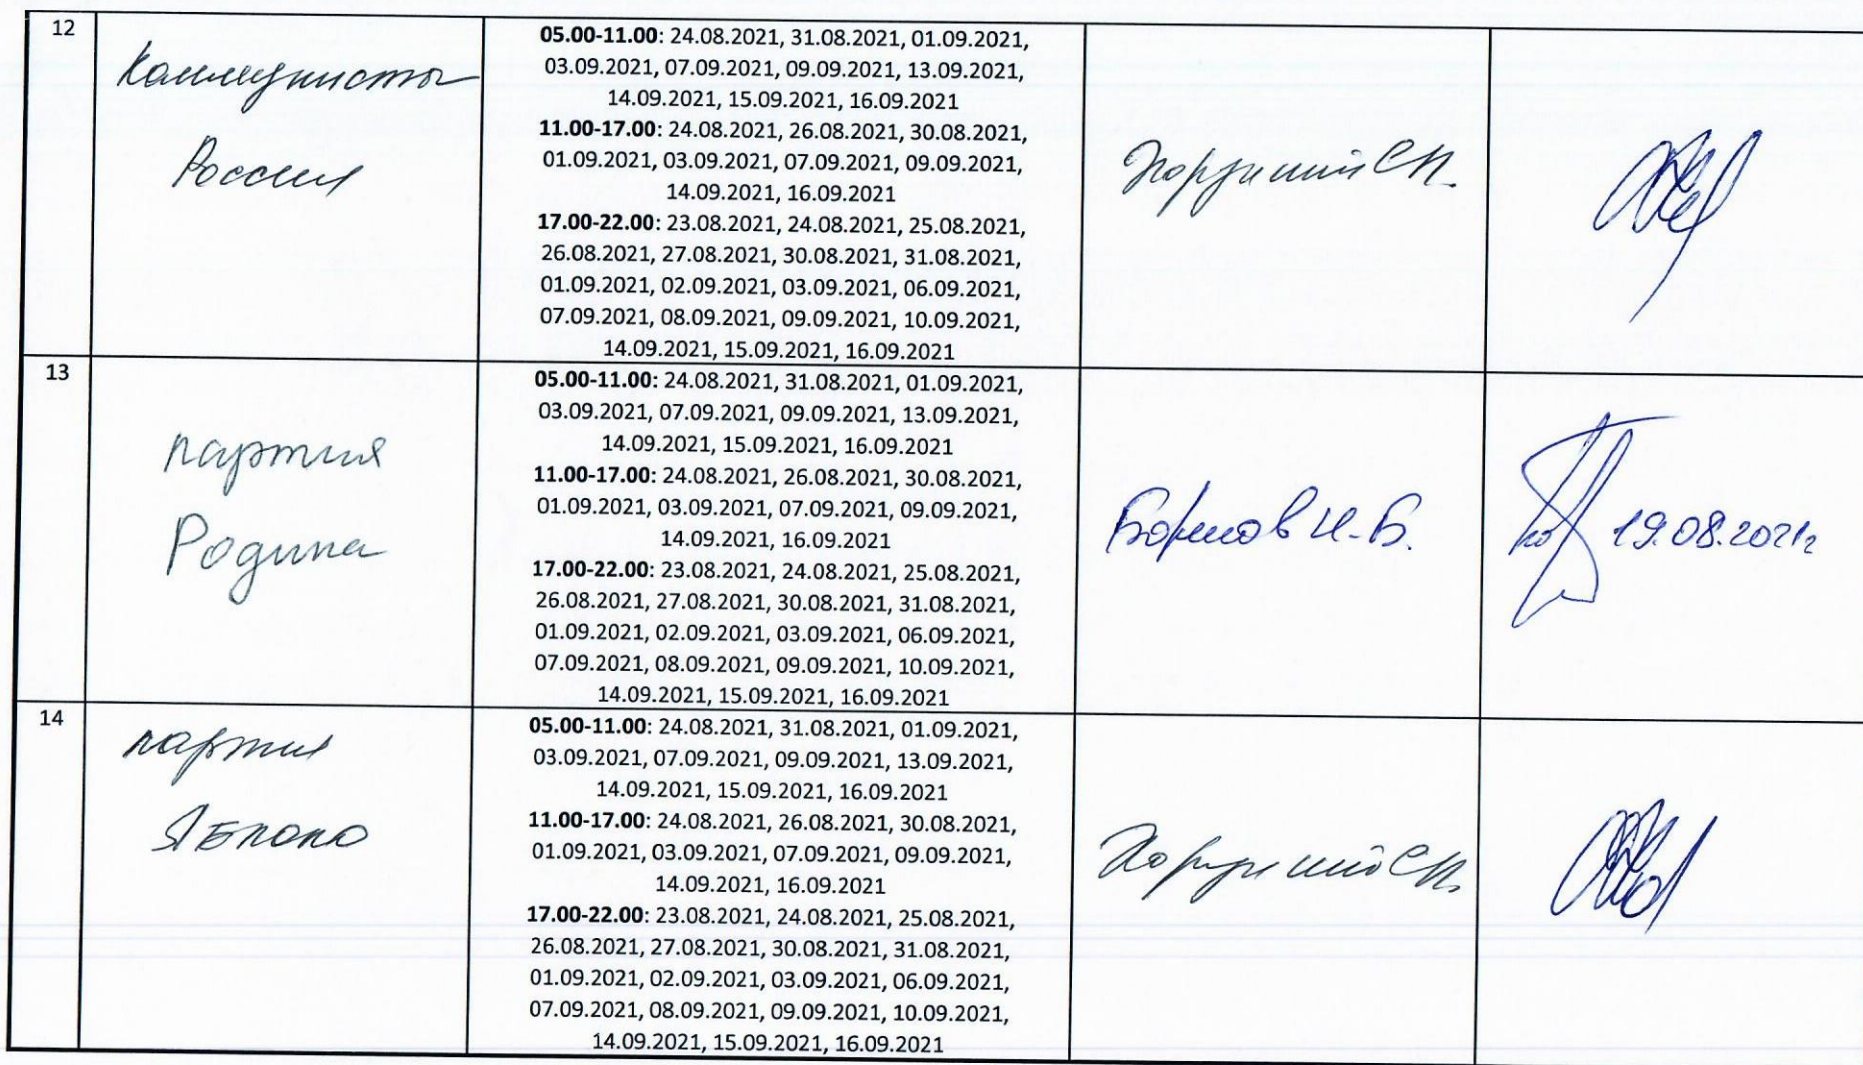 12
Коммунисты
России
05.00-11.00: 24.08.2021, 31.08.2021, 01.09.2021,
03.09.2021, 07.09.2021, 09.09.2021, 13.09.2021,
14.09.2021, 15.09.2021, 16.09.2021
11.00-17.00: 24.08.2021, 26.08.2021, 30.08.2021,
01.09.2021, 03.09.2021, 07.09.2021, 09.09.2021,
14.09.2021, 16.09.2021
17.00-22.00: 23.08.2021, 24.08.2021, 25.08.2021,
26.08.2021, 27.08.2021, 30.08.2021, 31.08.2021,
01.09.2021, 02.09.2021, 03.09.2021, 06.09.2021,
07.09.2021, 08.09.2021, 09.09.2021, 10.09.2021,
14.09.2021, 15.09.2021, 16.09.2021
13
партия
Родина
05.00-11.00: 24.08.2021, 31.08.2021, 01.09.2021,
03.09.2021, 07.09.2021, 09.09.2021, 13.09.2021,
14.09.2021, 15.09.2021, 16.09.2021
11.00-17.00: 24.08.2021, 26.08.2021, 30.08.2021,
01.09.2021, 03.09.2021, 07.09.2021, 09.09.2021,
14.09.2021, 16.09.2021
17.00-22.00: 23.08.2021, 24.08.2021, 25.08.2021,
26.08.2021, 27.08.2021, 30.08.2021, 31.08.2021,
01.09.2021, 02.09.2021, 03.09.2021, 06.09.2021,
07.09.2021, 08.09.2021, 09.09.2021, 10.09.2021,
14.09.2021, 15.09.2021, 16.09.2021
И.Б.
19.08.2021г
14
партия
Яблоко
05.00-11.00: 24.08.2021, 31.08.2021, 01.09.2021,
03.09.2021, 07.09.2021, 09.09.2021, 13.09.2021,
14.09.2021, 15.09.2021, 16.09.2021
11.00-17.00: 24.08.2021, 26.08.2021, 30.08.2021,
01.09.2021, 03.09.2021, 07.09.2021, 09.09.2021,
14.09.2021, 16.09.2021
17.00-22.00: 23.08.2021, 24.08.2021, 25.08.2021,
26.08.2021, 27.08.2021, 30.08.2021, 31.08.2021,
01.09.2021, 02.09.2021, 03.09.2021, 06.09.2021,
07.09.2021, 08.09.2021, 09.09.2021, 10.09.2021,
14.09.2021, 15.09.2021, 16.09.2021